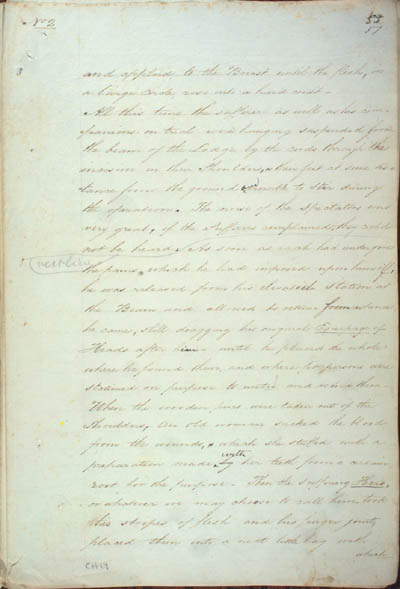 No 2
57
and applied to the Breast until the flesh, in
a large circle rose into a hard crust –
All this time the sufferer as well as his com-
panions on trial were hanging suspended from
the beam of the Lodge by the cords through the
incision in their Shoulders, & their feet at some dis
tance from the ground, smoke to stir during
the operation. The noise of the Spectators was
very great, if the sufferers complained, they could
not be heard. As soon as each had undergone
next line
the pains, which he had imposed upon himself,
he was released from his elevated station at
the Beam and allowed to retire from whence
he came, still dragging his original Equipage of
Heads after him – until he placed the whole
where he found them, and where two persons are
stationed on purpose to untie and
When the wooden pins were taken out of the
Shoulders, an old woman sucked the blood
from the wounds, & which she stuffed with a
preparation made with her teeth from a certain
root for the purpose – Then the suffering Hero,
or whatever we may chose to call him took
the stripes of flesh and his finger joints
placed them into a neat little bag
which